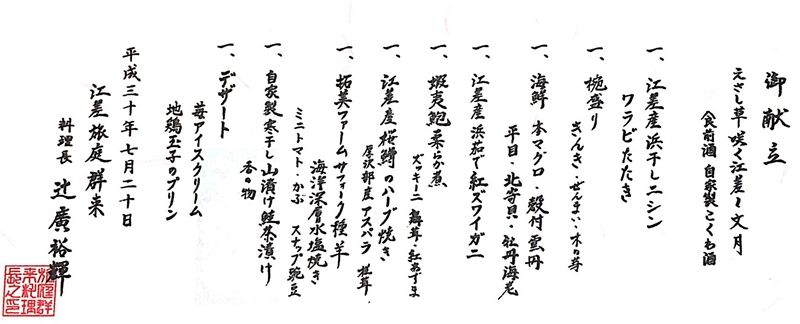 御献立
えさし草咲く江差〜文月
食前酒 自家製こくわ酒
一、江差産浜干しニシン
ワラビたたき
一、椀盛り
きんき・ぜんまい・木の芽
一、海鮮 本マグロ・殻付雲丹
平目・北寄貝・牡丹海老
一、江差産浜茹で紅ズワイガニ
一、蝦夷鮑柔らか煮
ズッキーニ 舞茸・紅あずま
一、江差産桜鱒のハーブ焼き
厚沢部産アスパラ 椎茸・
一、拓美ファームサフォーク種羊
海洋深層水塩焼き
ミニトマト・かぶ スナップ豌豆
一、自家製寒干し山漬け鮭茶漬け
香の物
一、デザート
苺アイスクリーム
地鶏玉子のプリン
平成三十年七月二十日
江差旅庭群来
料理長 辻廣裕輝